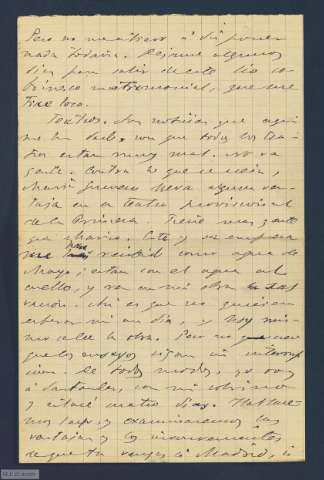 Pero no me atrevo á disponer
nada todavía. Déjame algunos
días para salir de este lío co-
mico matrimonial, que me
trae loco.
Teatros. Las noticias que aquí
me han dado, son que todos los tea-
tros están muy mal. No va
gente. Contra lo que se creía,
María Guerrero lleva alguna ven-
taja en su teatro provisional
de la Princesa. Tiene más gente
que
me han recibido como agua de
Mayo; están con el agua al
cuello, y ven en mi obra la sal-
vación. Así es que no quisieron
esperar ni un día, y hoy mis-
mo se lee la obra. Pero no
que los ensayos sigan sin interrup-
ción. De todos modos, yo voy
á Santander, con mi sobrino
y estaré cuatro días. Hablare-
mos largo, y examinaremos las
ventajas y los inconvenientes
de que tu vengas á Madrid,